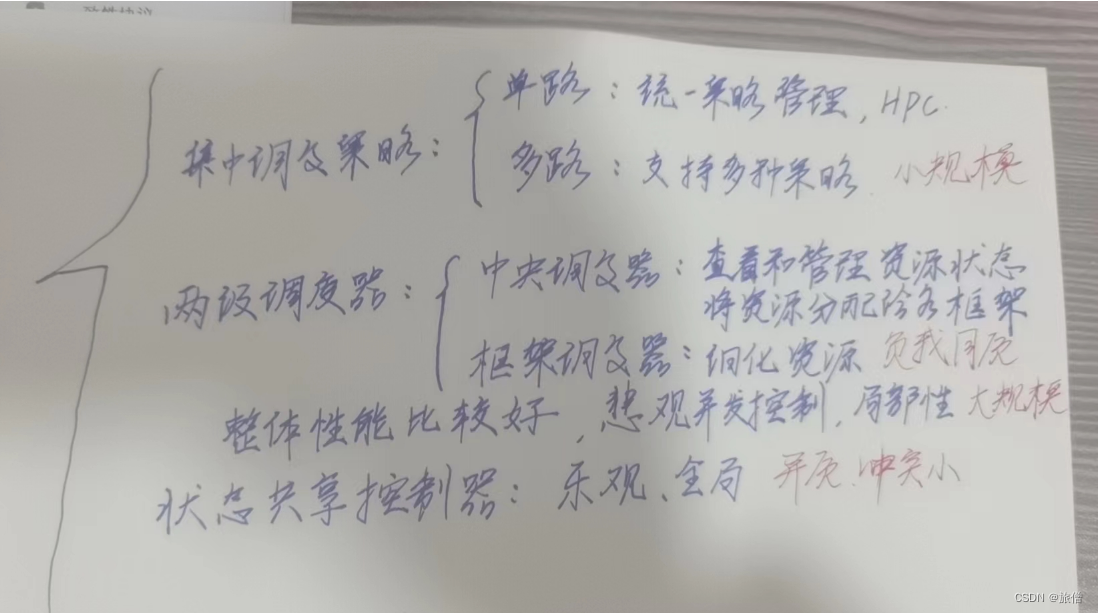 集中调度策略：
单路：统一策略管理，HPC.
多路：支持多种策略 小规模
两段调度器：
中央调度器：查看和管理资源状态
将资源分配给各框架
框架调度器：细化资源 负载同质
整体性能比较好，悲观并发控制，局部性 大规模
状态共享控制器：乐观、全局 异质、冲突小
CSDN @旅僧